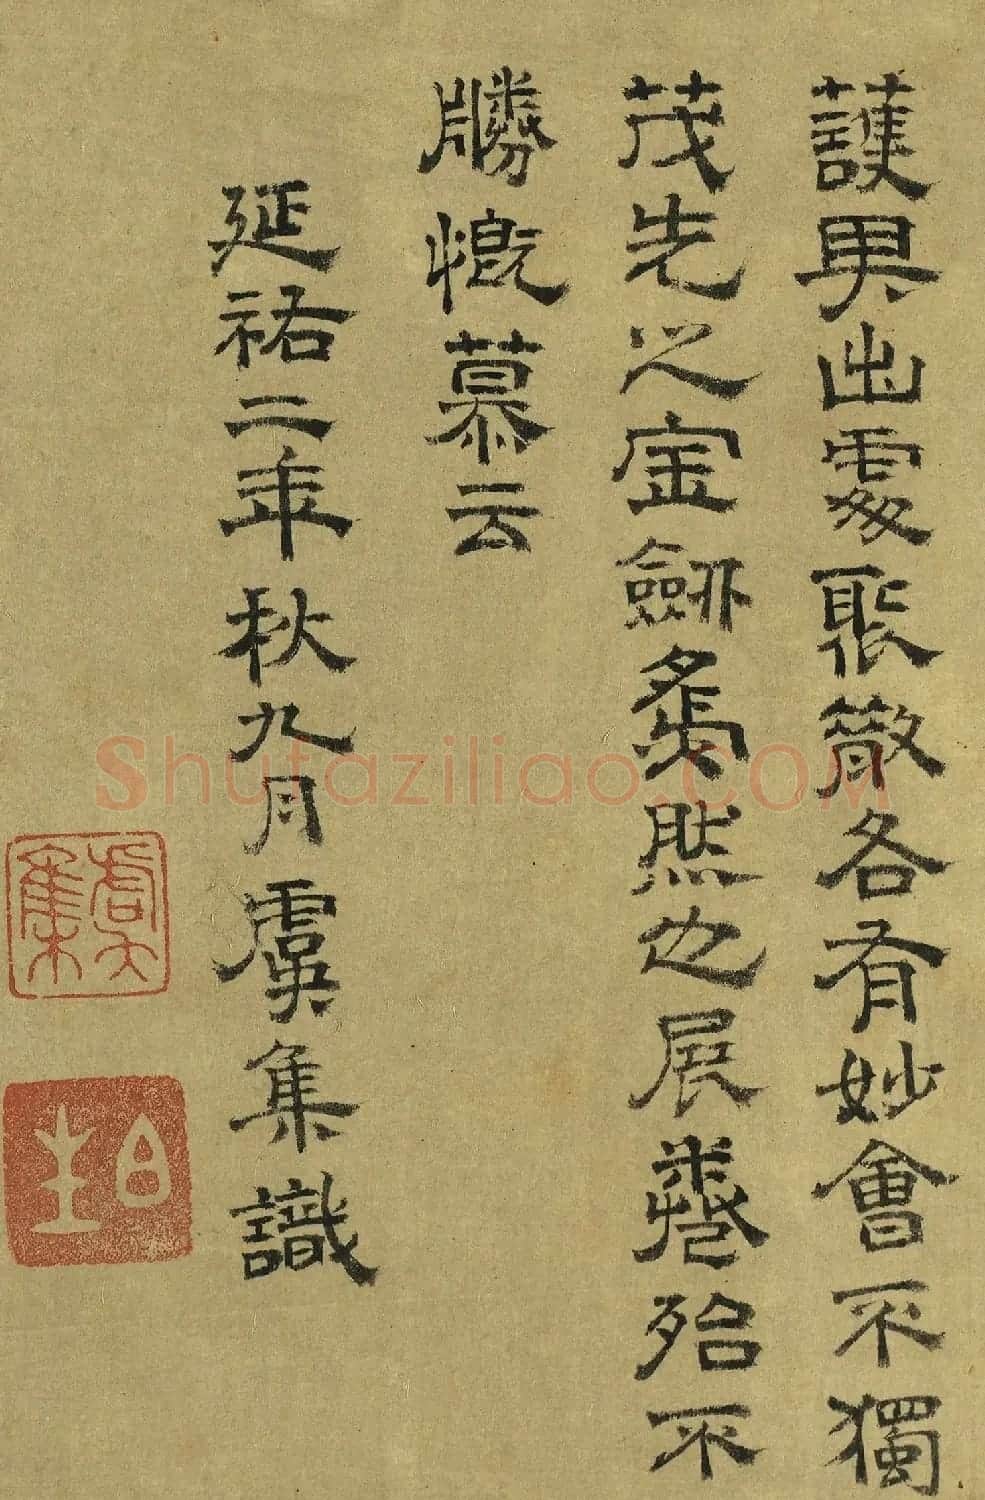 護其出處聚散各有妙會不獨
茂先之寶劍爲然也展卷殆不
勝慨慕云
延祐二年秋九月虞集識
虞集
白生
Shufaziliao.COM